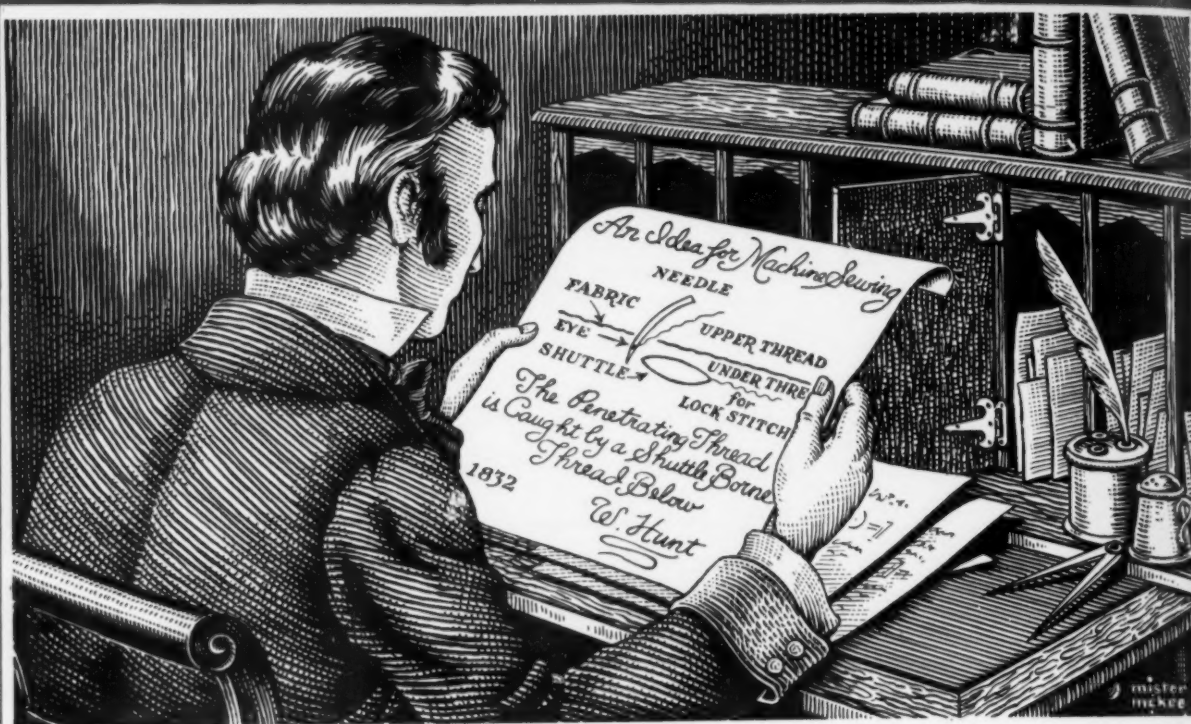 An Idea for Machine Sewing
NEEDLE
FABRIC
EYE
UPPER THREAD
SHUTTLE
UNDER THRE
for
LOCK STITCH
The Penetrating Thread
is Caught by a Shuttle Borne
Thread Below
1832
W. Hunt
mister
mckee